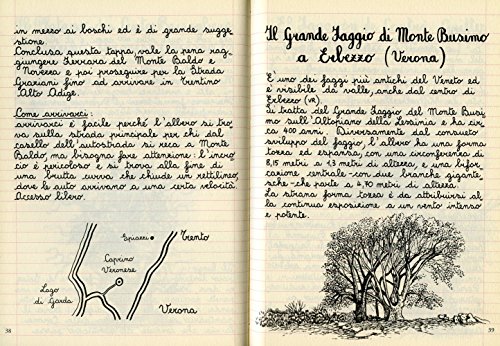 in mezzo ai boschi ed è di grande sugge
stione.
Conclusa questa tappa, vale la pena rag-
giungere Ferrara del Monte Baldo e
Novezza e poi proseguire per la Strada
Graziani fino ad arrivare in Trentino
Alto Adige.
Come arrivarci:
arrivarci è facile perché l'albero si tro_
va sulla strada principale per chi dal
casello dell'autostrada si reca a Monte
Baldo, ma bisogna fare attenzione: l'incro_
cio è pericoloso e si trova alla fine di
una brutta curva che chiude un rettilineo,
dove le auto arrivano a una certa velocità.
Accesso libero.
Spiazzi
Trento
Caprino
Veronese
Lago
di Garda
Verona
38
Il Grande Faggio di Monte Busimo
a Erbezzo (Verona)
E' uno dei faggi più antichi del Veneto ed
è visibile da valle, anche dal centro di
Erbezzo (VR).
Si tratta del Grande Faggio del Monte Busi_
mo sull'Altopiano della Lessinia e ha cir_
ca 400 anni. Diversamente dal consueto
sviluppo del faggio, l'albero ha una forma
tozza ed espansa, con una circonferenza di
8,15 metri a 1,3 metri di altezza, e una bifor_
cazione centrale - con due branche gigante_
sche - che parte a 4,70 metri di altezza.
La strana forma tozza è da attribuirsi al_
la continua esposizione a un vento intenso
e potente.
39